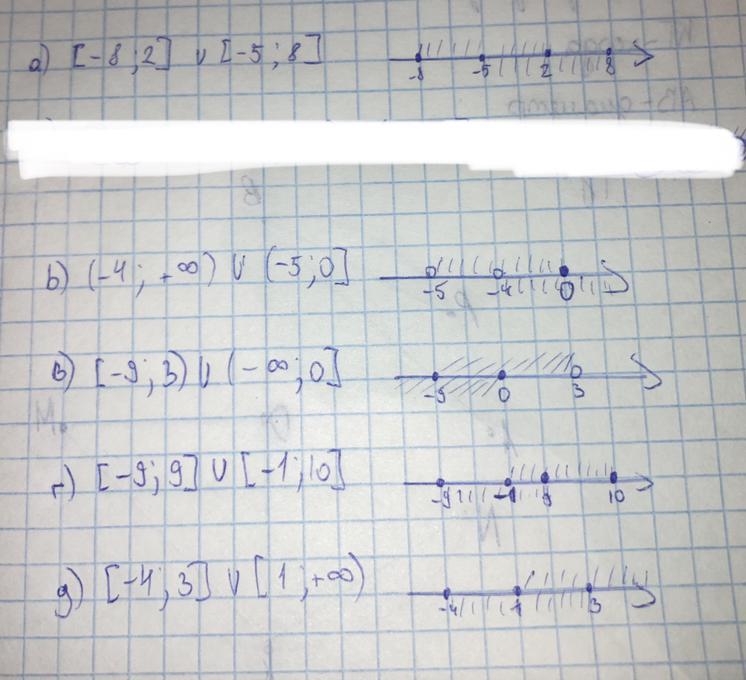 а) [-8; 2] ∪ [-5; 8]
-8 -5 2 8
b) (-4; +∞) ∪ (-5; 0]
-5 -4 0
в) [-9; 3) ∪ (-∞; 0]
-9 0 3
г) [-9; 9] ∪ [-1; 10]
-9 -1 9 10
д) [-4; 3] ∪ [1; +∞)
-4 1 3